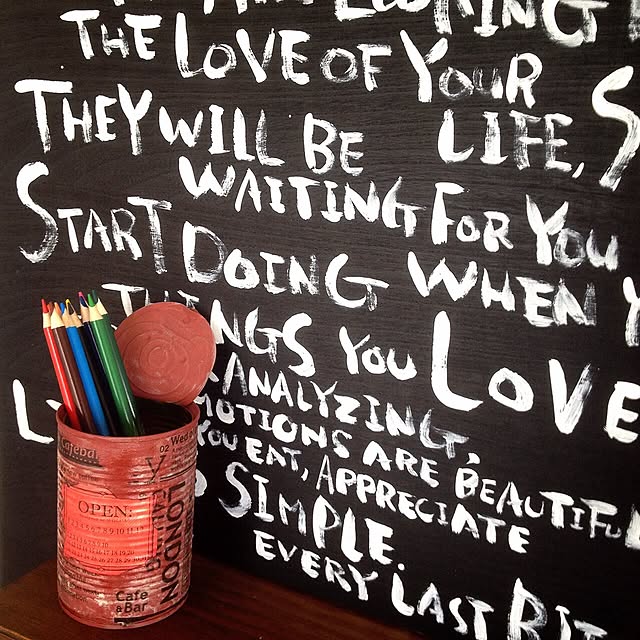 LOOKING
THE LOVE OF YOUR
THEY WILL BE LIFE, S
WAITING FOR YOU
START DOING WHEN Y
THINGS YOU LOVE
ANALYZING,
MOTIONS ARE BEAUTIFUL
YOU EAT, APPRECIATE
SIMPLE.
EVERY LAST BIT
02 Wed
OPEN:
LONDON
Cafe
&Bar